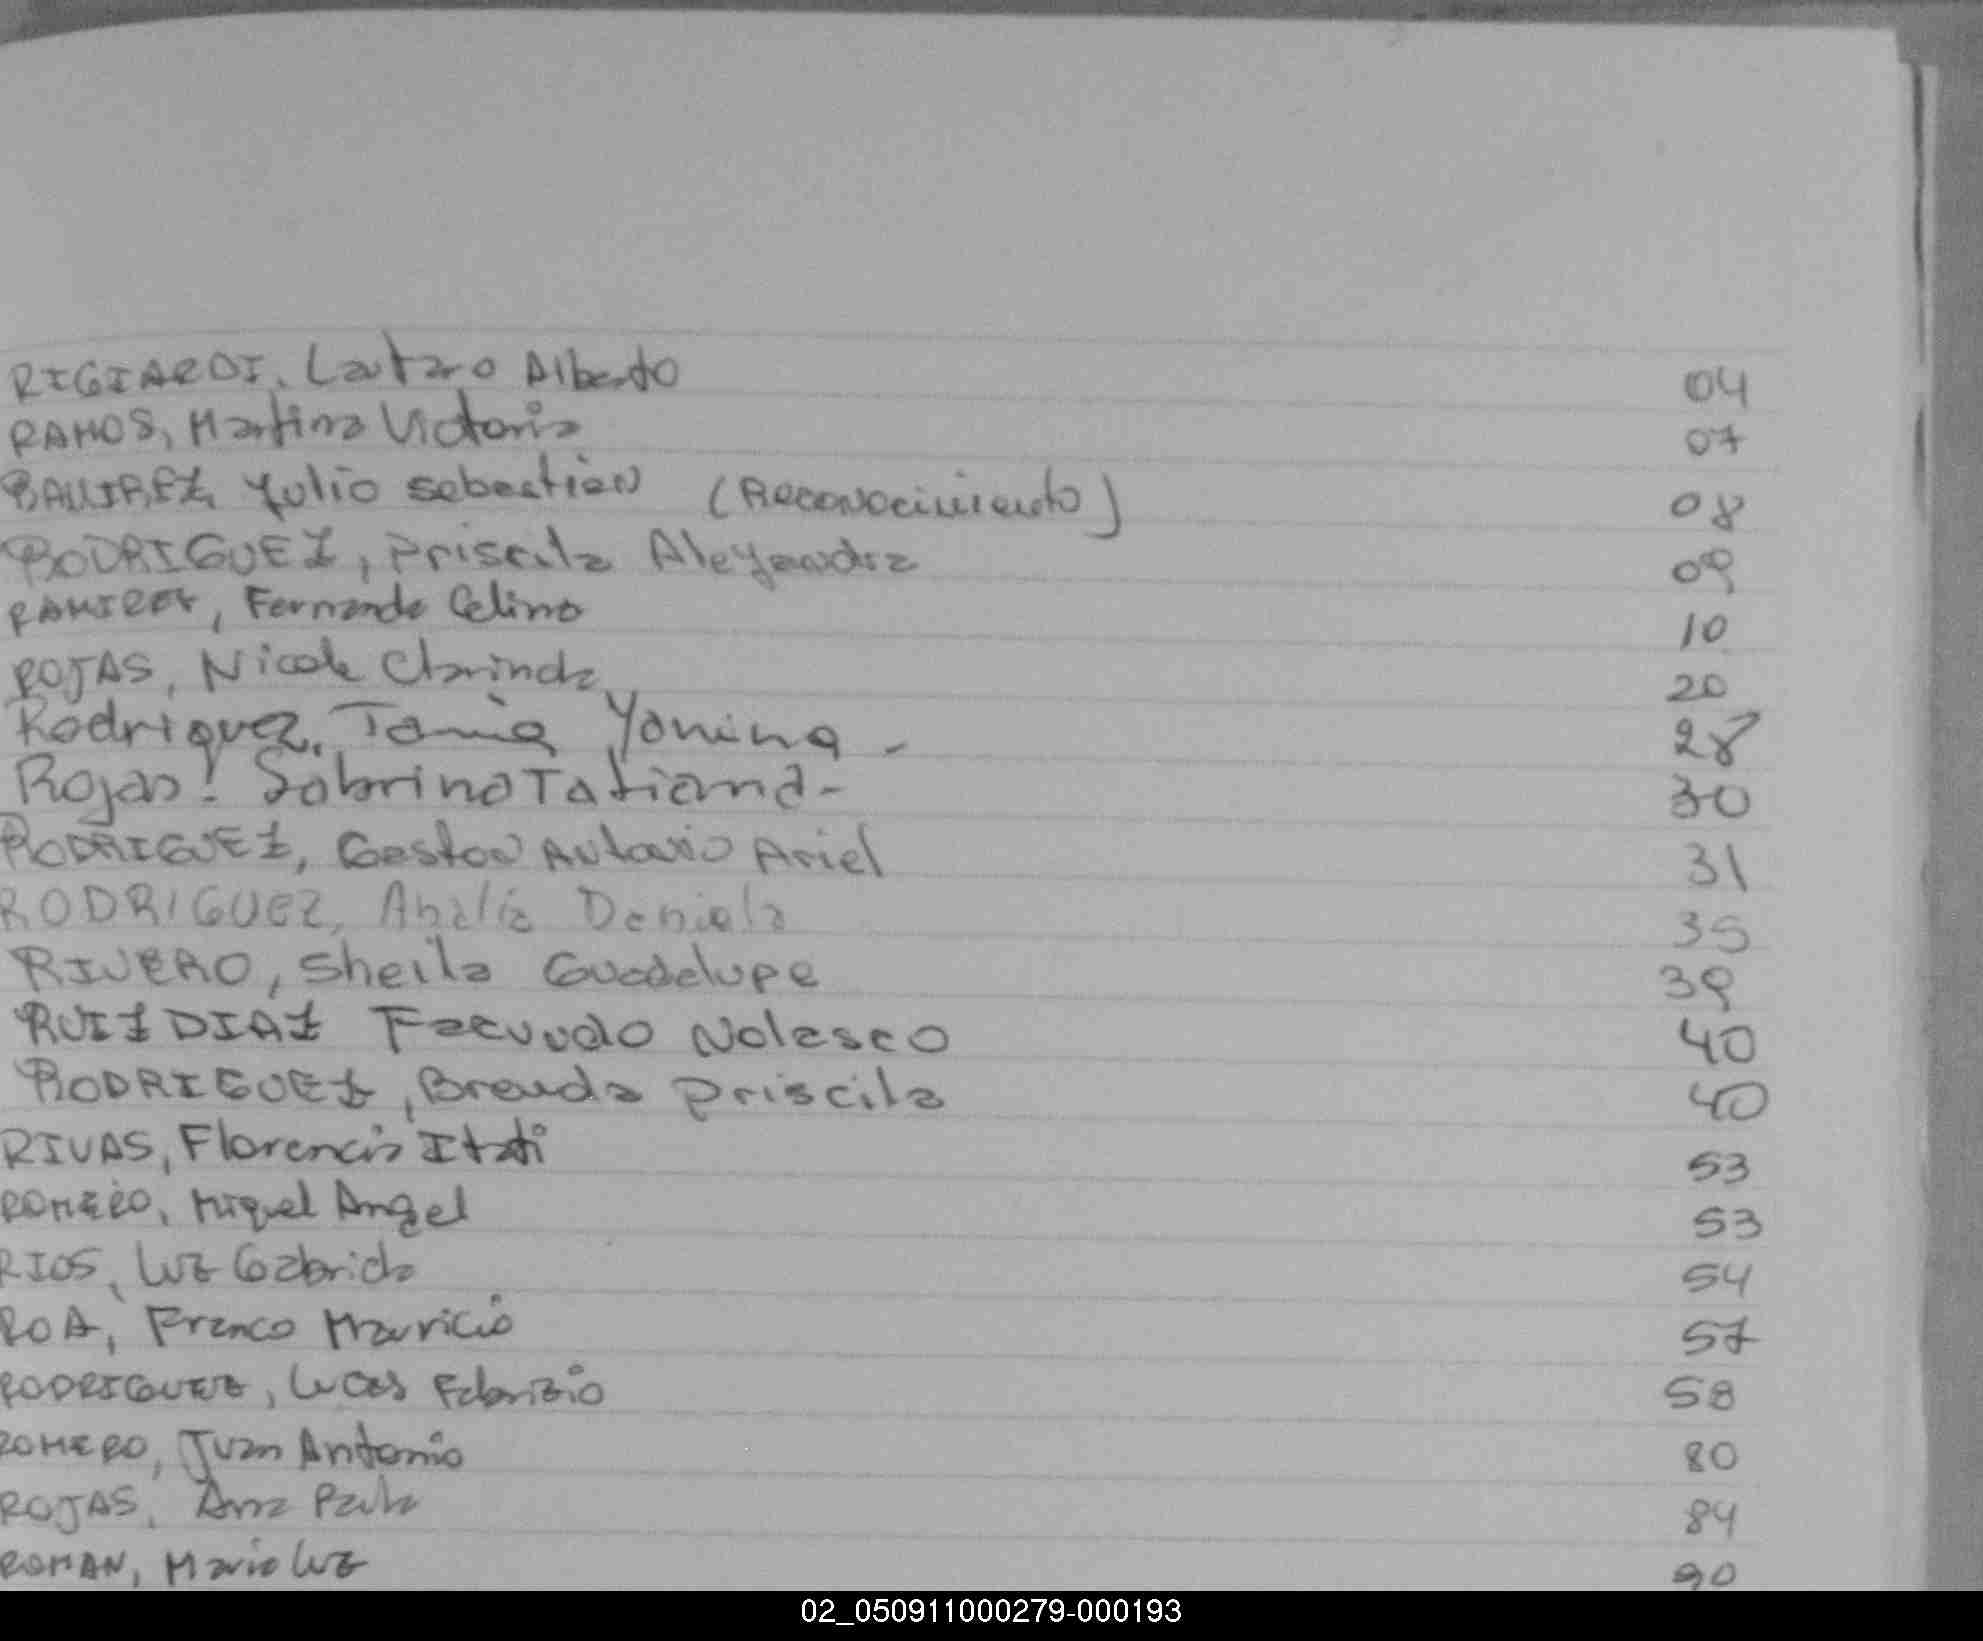 RIGIARDI, Lautaro Alberto 04
RAMOS, Martina Victoria 07
RAMIREZ, Yulio sebastian (Reconocimiento) 08
RODRIGUEZ, Priscila Aleyandra 09
RAMIREZ, Fernando Celino 10
ROJAS, Nicole Clarinda 20
Rodriguez, Tania Yanina - 28
Rojas! Sobrino Tatiana - 30
RODRIGUEZ, Gaston Antonio Ariel 31
RODRIGUEZ, Analía Daniela 35
RIVERO, Sheila Guadelupe 39
RUIZ DIAZ Facundo Nolasco 40
RODRIGUEZ, Brenda Priscila 40
RIVAS, Florencia Itati 53
ROMERO, Miguel Angel 53
RIOS, Luz Gabriela 54
ROA, Franco Mauricio 57
RODRIGUEZ, Lucas Fabrizio 58
ROMERO, Juan Antonio 80
ROJAS, Ana Paula 84
ROMAN, Maria Luz 90
02_050911000279-000193